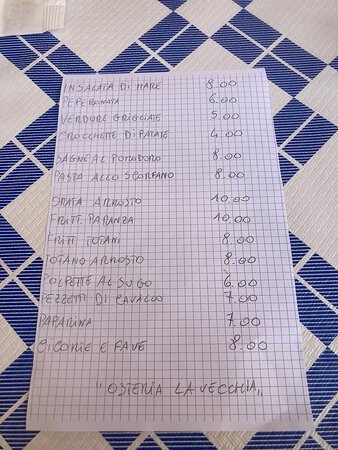 INSALATA DI MARE 8.00
PEPERONATA 6.00
VERDURE GRIGLIATE 5.00
CROCCHETTE DI PATATE 4.00
SAGNE AL POMODORO 8.00
PASTA ALLO SCORFANO 8.00
ORATA ARROSTO 10.00
FRITT. PARANZA 10.00
FRITT. TOTANI 8.00
TOTANO ARROSTO 8.00
POLPETTE AL SUGO 6.00
PEZZETTI DI CAVALLO 7.00
PAPARINA 7.00
CICORIE E FAVE 8.00
"OSTERIA LA VECCHIA"